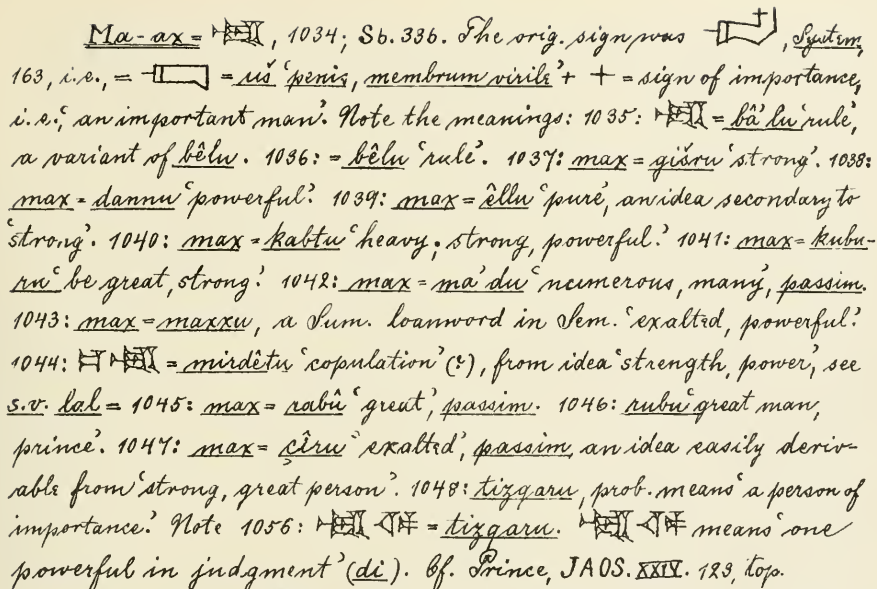 Ma-ax = 𒈤, 1034; Sb. 336. The orig. sign was , System,
163, i.e., = = uš ‘penis, membrum virile’ + + = sign of importance,
i.e.‘, an important man’. Note the meanings: 1035: 𒈤 = bâ’lu ‘rule’,
a variant of bêlu. 1036: = bêlu ‘rule’. 1037: max = gišru ‘strong’. 1038:
max = dannu ‘powerful’. 1039: max = êllu ‘pure’, an idea secondary to
‘strong’. 1040: max = kabtu ‘heavy; strong, powerful.’ 1041: max = kubu-
ru ‘be great, strong.’ 1042: max = ma’du ‘numerous, many’, passim.
1043: max = maxxu, a Sum. loanword in Sem. ‘exalted, powerful.’
1044: 𒈤 = mirdêtu ‘copulation’ (?), from idea ‘strength, power’, see
s.v. lal = 1045: max = rabû ‘great’, passim. 1046: rubû ‘great man,
prince’. 1047: max = çîru ‘exalted’, passim, an idea easily deriv-
able from ‘strong, great person’. 1048: tizqaru, prob. means ‘a person of
importance.’ Note 1056: 𒈤 𒁲 = tizqaru. 𒈤 𒁲 means ‘one
powerful in judgment’ (di). Cf. Prince, JAOS. XXIV. 123, top.